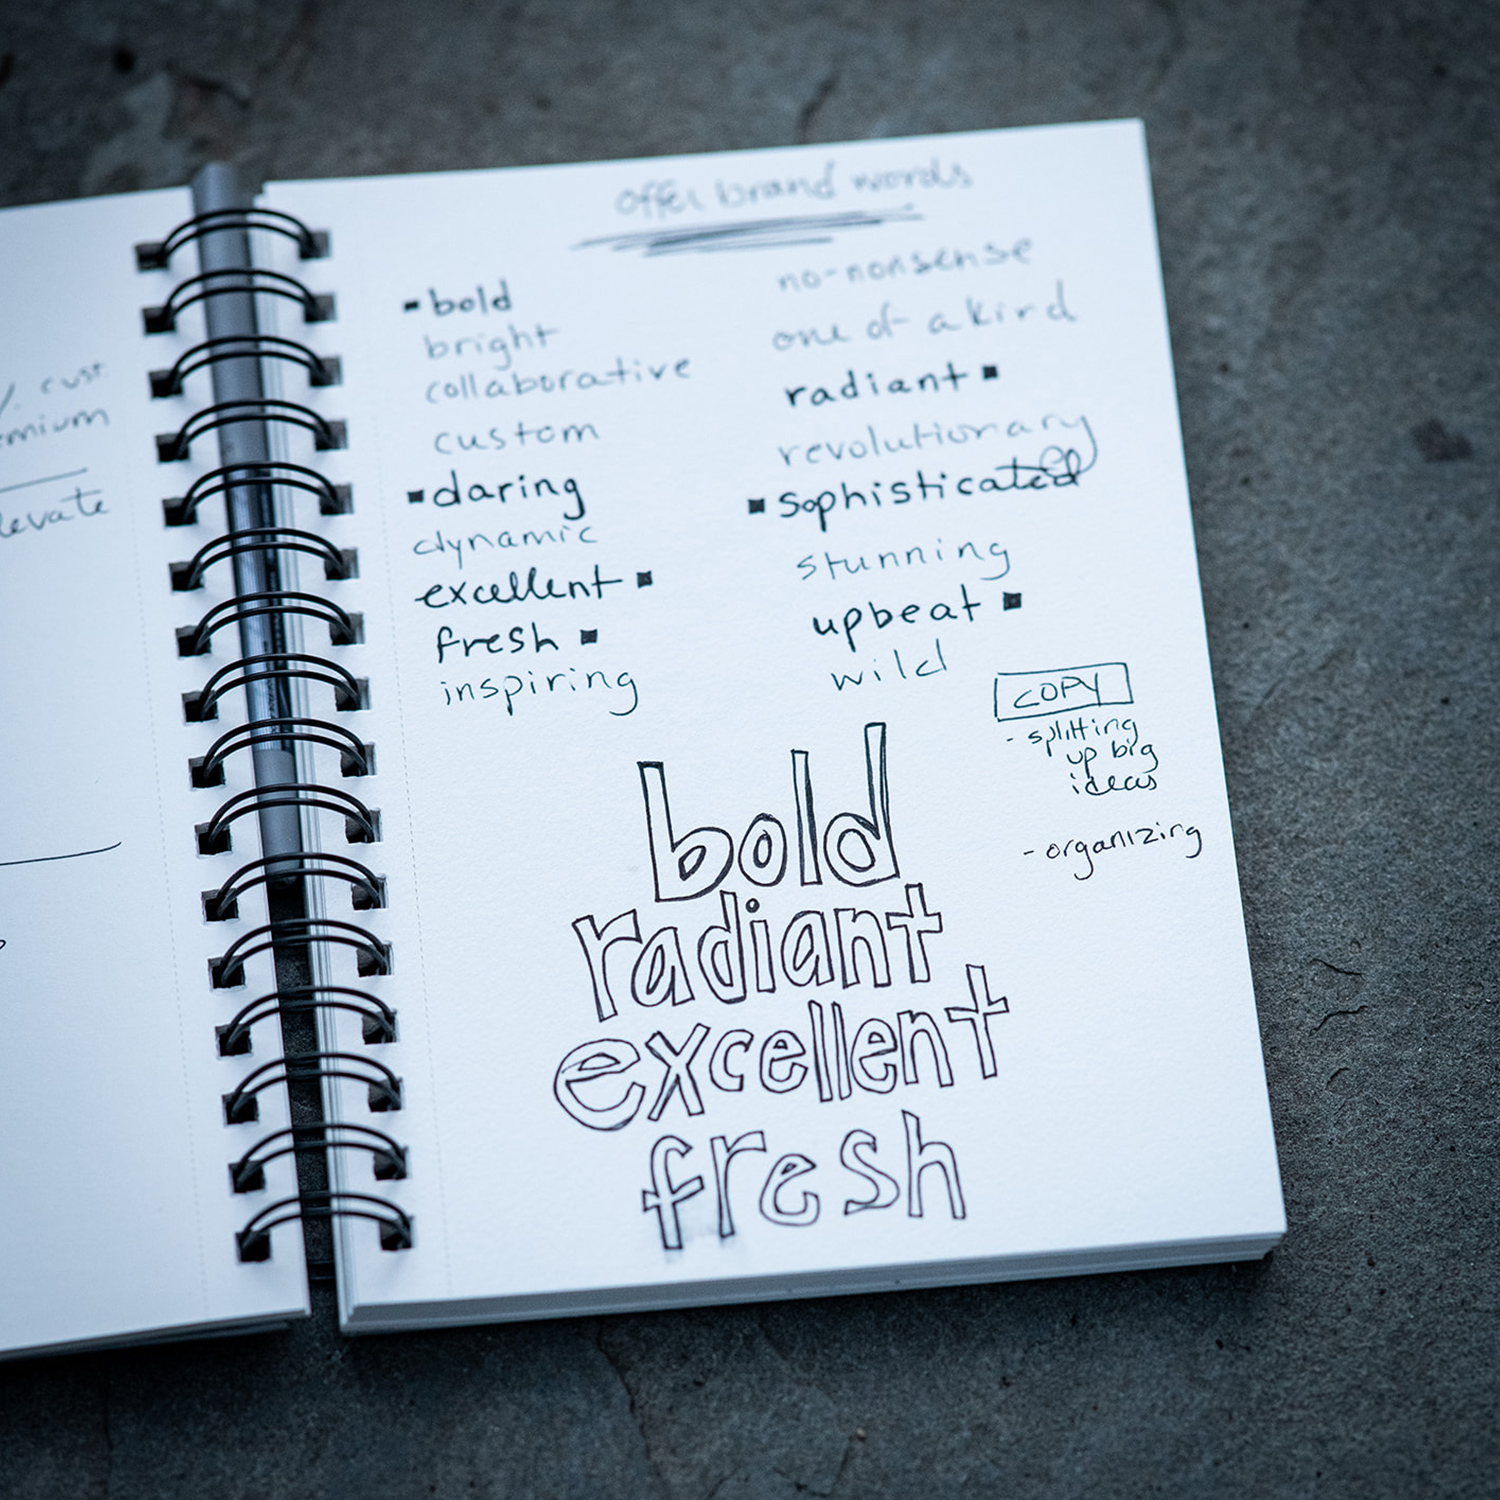 cust.
levate
offer brand words
bold
bright
collaborative
custom
daring
dynamic
excellent
fresh
inspiring
no-nonsense
one of a kind
radiant
revolutionary
sophisticated
stunning
upbeat
wild
COPY
- splitting
up big
ideas
- organizing
bold
radiant
excellent
fresh